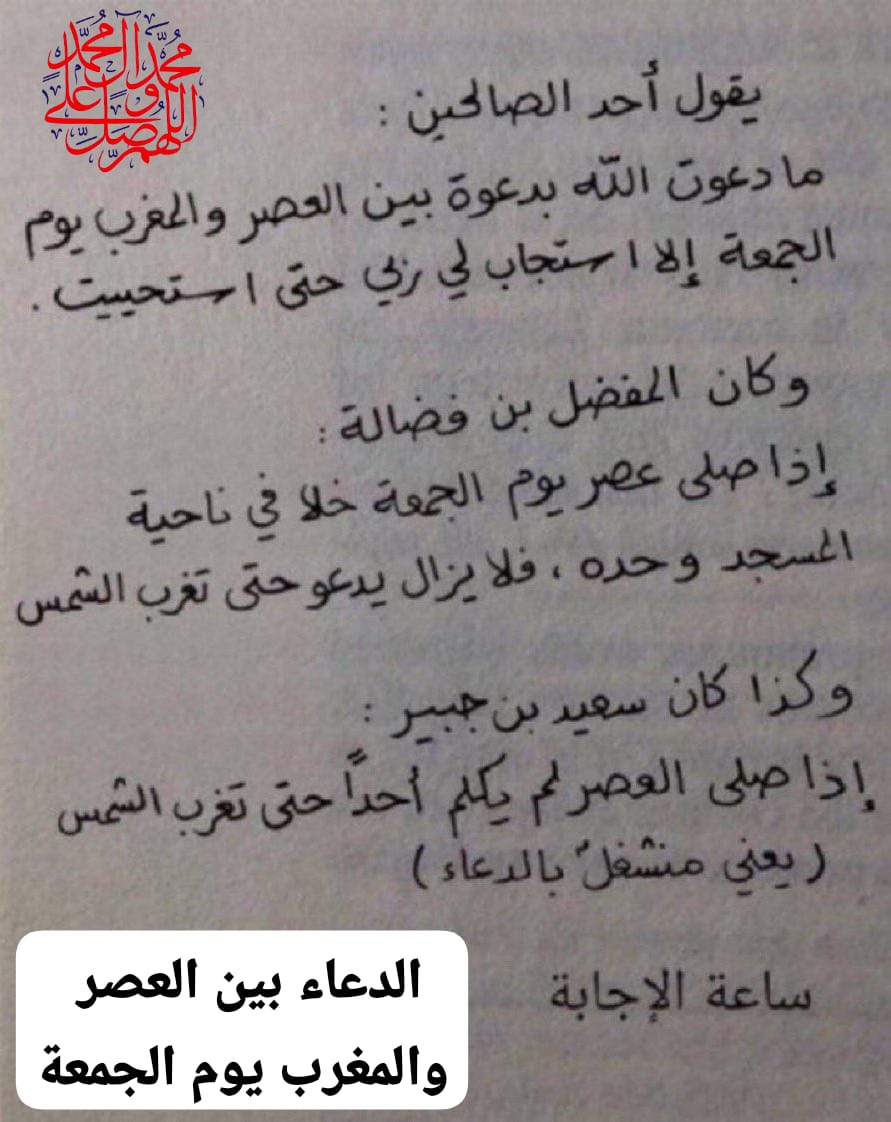 اللهم صل على محمد وآل محمد
يقول أحد الصالحين :
ما دعوت الله بدعوة بين العصر والمغرب يوم
الجمعة إلا استجاب لي ربي حتى استحييت .
وكان المفضل بن فضالة :
إذا صلى عصر يوم الجمعة خلا في ناحية
المسجد وحده ، فلا يزال يدعو حتى تغرب الشمس
وكذا كان سعيد بن جبير :
إذا صلى العصر لم يكلم أحداً حتى تغرب الشمس
( يعني منشغلٌ بالدعاء )
ساعة الإجابة
الدعاء بين العصر
والمغرب يوم الجمعة